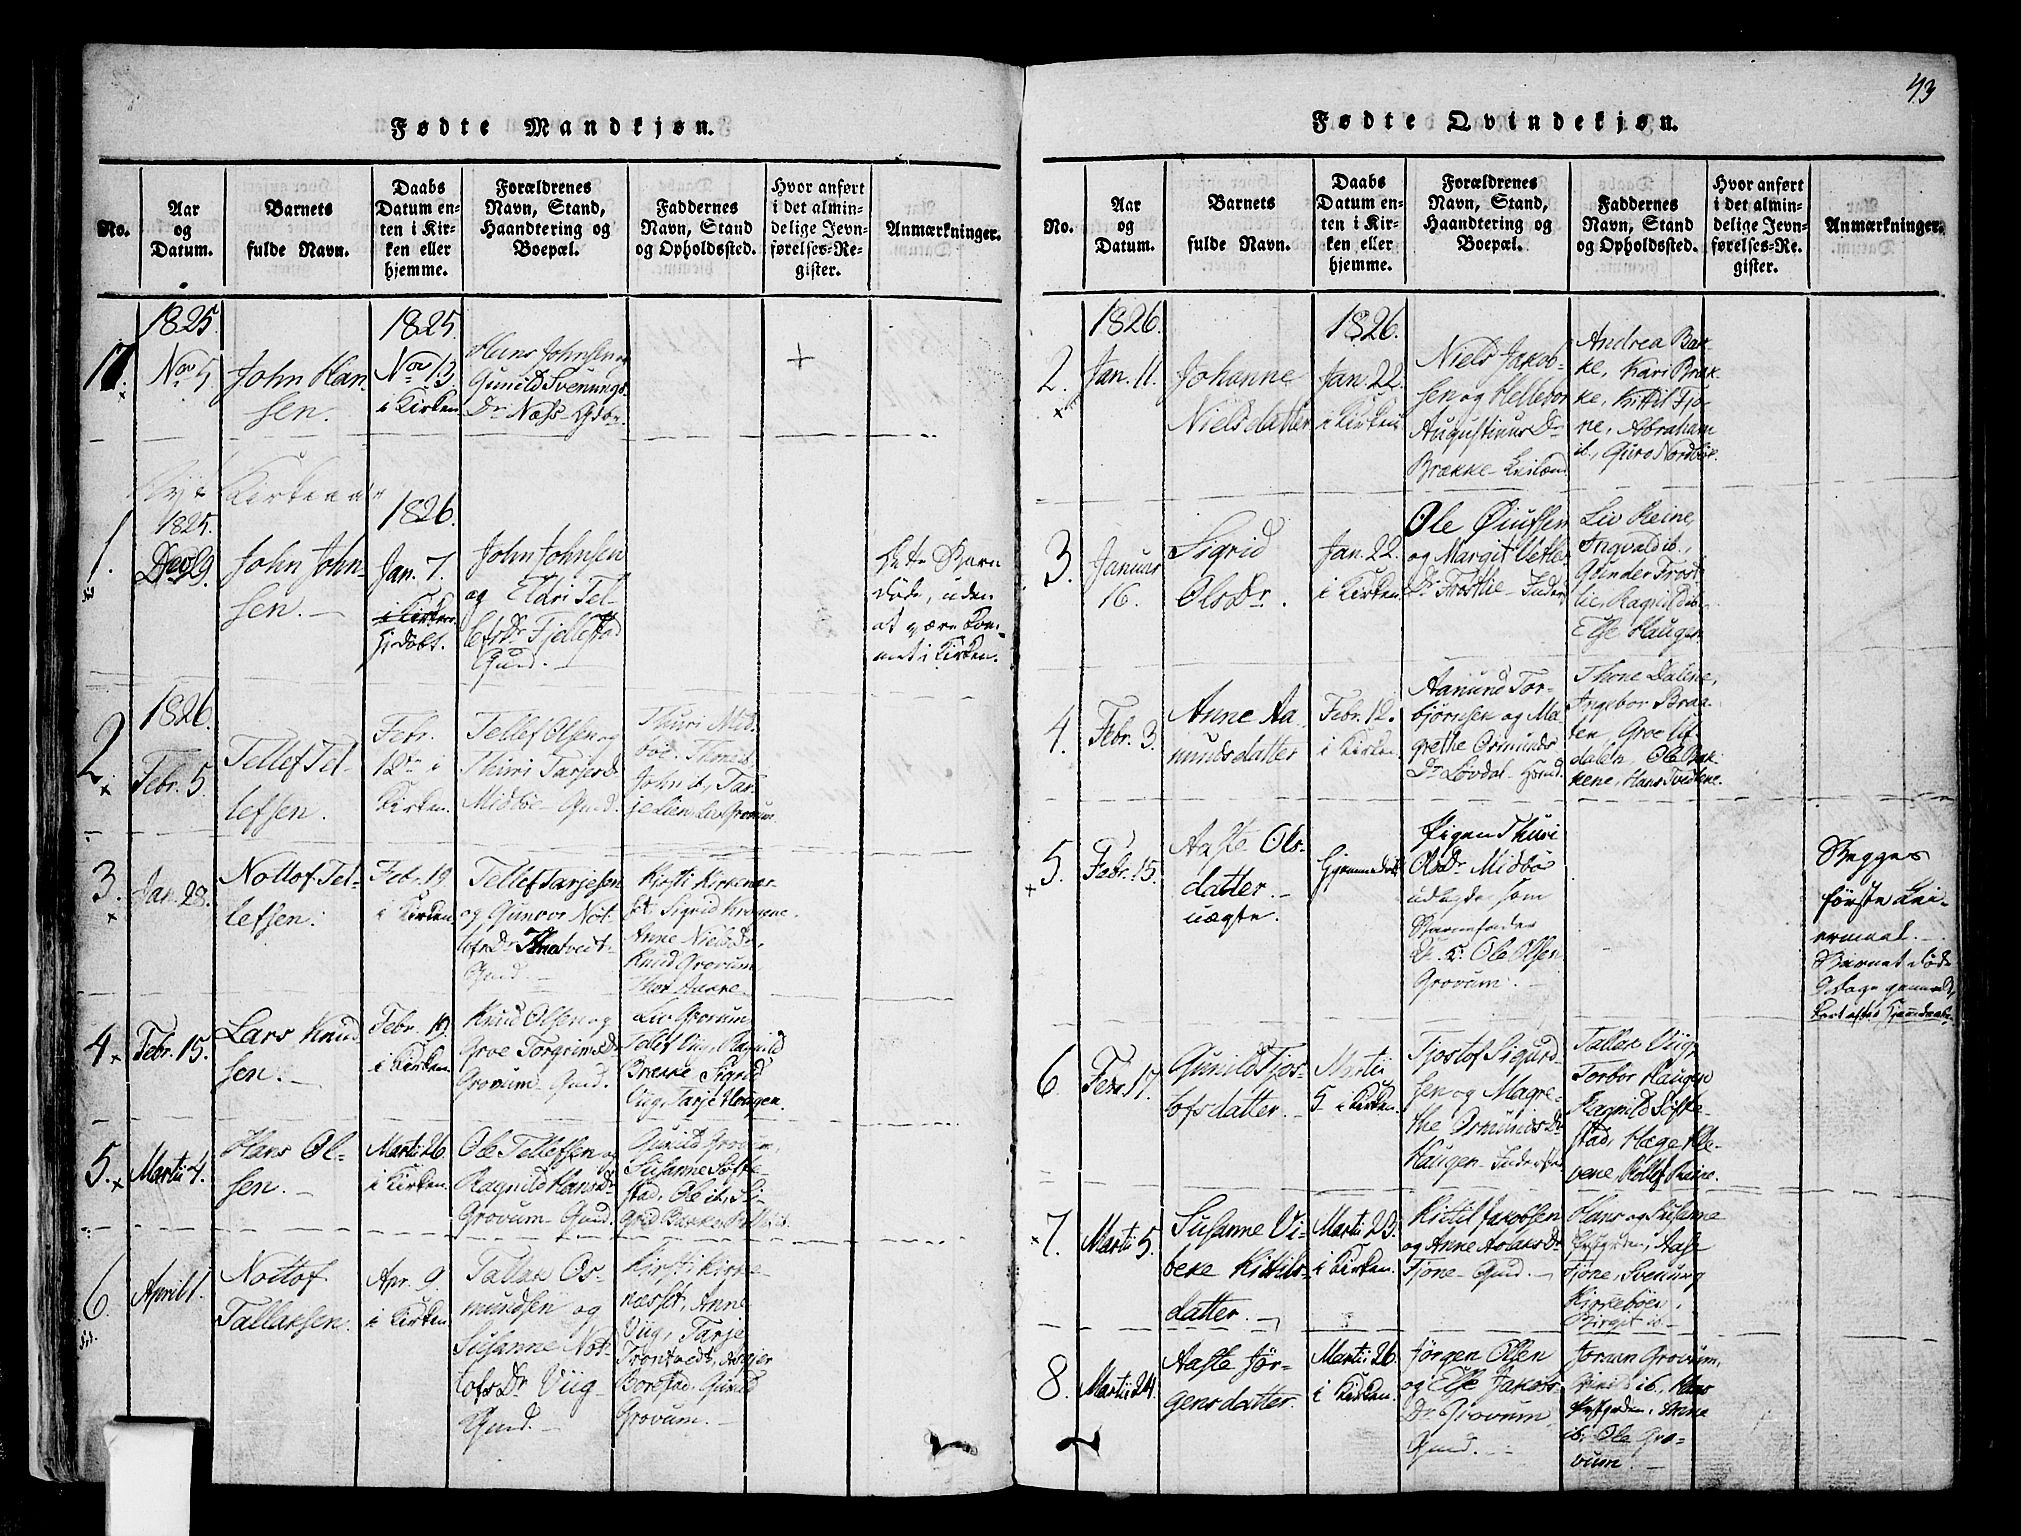 Fødte Mandkjøn.
No.
Aar
og
Datum.
Barnets
fulde Navn.
Daabs
Datum en-
ten i Kir-
ken eller
hjemme.
Forældrenes
Navn, Stand,
Haandtering og
Boepæl.
Faddernes
Navn, Stand
og Opholdssted.
Hvor anført
i det almin-
delige Jevn-
førelses-Re-
gister.
Anmærkninger.
17.
1825.
Nov 5
John Han-
sen.
1825.
Nov 13
i Kirken
Hans Johnsen og
Gunild Svenungs
Dr. Næss
+
Nyt Kirkeaar
1.
1825.
Dec 29.
John John-
sen.
1826.
Jan. 7.
i Kirken
Hjdøbt.
John Johnsen
og Eldri Tel-
lefs Dr Fjellestad
Gund.
Dette Barn
døde, uden
at være kom-
met i Kirken.
2
1826.
Febr. 5
Tellef Tel-
lefsen.
Febr.
12te i
Kirken.
Tellef Olsen og
Thuri Tarjes Dr
Midbøe Gund.
Thuri Mid-
bøe. Thone ib,
John ib, Tar-
je Lien, Liv Grovum
3.
Jan. 28.
Nottof Tel-
lefsen.
Febr. 19
i Kirken
Tellef Tarjesen
og Gunovr Not-
tofs Dr Trontvedt
Gund.
Kirsti Kirkenes-
set Sigrid
Anne Niels Dr,
Knud Grovum
4
Febr. 15.
Lars Knud
sen.
Febr. 19
i Kirken
Knud Olsen og
Groe Torgrims Dr
Grovum Gund.
Liv Grovum
Tellef Viig, Ragnild
Brække Sigrid
Viig, Tarje Haugen.
5.
Martii 4.
Hans Ol-
sen.
Martii 26
i Kirken.
Ole Tellefsen og
Ragnild Hans Dr
Grovum Gund.
Gunild Grovum,
Susanne Søfte-
stad, Ole ib, Si-
grid Bakke
6.
April 1.
Nottof
Tallaksen.
Apr. 9
i Kirken
Tallak Os-
mundsen og
Susanne Not-
tofs Dr Viig
Gund.
Kirsti Kirke-
næsset, Anne
Viig, Tarje
Trontvedt, Asbjør
Borestad, Gunild
Grovum.
43
Fødte Qvindekjøn.
No.
Aar
og
Datum.
Barnets
fulde Navn.
Daabs
Datum en-
ten i Kir-
ken eller
hjemme.
Forældrenes
Navn, Stand,
Haandtering og
Boepæl.
Faddernes
Navn, Stand
og Opholdssted.
Hvor anført
i det almin-
delige Jevn-
førelses-Re-
gister.
Anmærkninger.
2.
1826.
Jan. 11.
Johanne
Nielsdatter
1826.
Jan. 22.
i Kirken
Niels Jakob-
sen og Hellebor
Augustinus Dr
Brække
Andrea Bak-
ke, Kari Bræk-
ke, Kittil Tjo-
ne, Abraham
ib, Guro Nordbøe.
3.
Januar
16.
Sigrid
Ols Dr.
Jan. 22.
i Kirken
Ole Øiufsen
og Margit Vetle
Dr Trostlie Inders
Liv Reine,
Ingvald ib,
Gunder Trost-
lie, Ragnild ib
Else Haugen
4.
Febr. 3.
Anne Aa-
mundsdatter
Febr. 12.
i Kirken
Aamund Tor-
bjørnsen og Ma-
grethe Osmunds
Dr Løvdal Gund.
Thone Dalene,
Ingebor Braa-
ten, Groe Uf-
dalen, Ole Bak-
kene, Hans Tveitene.
5.
Febr. 15.
Aaste Ols-
datter.
uægte.
Hjemmedøbt
Pigen Thuri
Ols Dr Midbøe
udlagde som
Barnefader
Ole Olsen
Grovum.
Begges
første Lei-
ermaal.
Barnet døde
6
Febr. 17.
Gunild Tjos-
tofsdatter.
Martii
5 i Kirken.
Tjostof Sigurd-
sen og Magre-
the Osmunds Dr
Haugen Inderste
Tallak Viig,
Torbor Haugen
Ragnild Søfte-
stad, Hæge Kle-
vene Rollef Reine.
7.
Martii 5.
Susanne Vi-
beke Kittils-
datter.
Martii 23.
i Kirken.
Kittil Jakobsen
og Anne Aslaks Dr
Tjone Gund.
Hans og Susanne
Præstgrden, Aase
Tjone, Svenung
Kirkebøen,
Birgit ib.
8.
Martii 24.
Aaste Jør-
gensdatter.
Martii 26
i Kirken.
Jørgen Olsen
og Else Jakobs
Dr Grovum
Gund.
Joraan Grovum,
Gunild ib, Hans
Præstgrden, Anne
ib, Ole Gro-
vum.